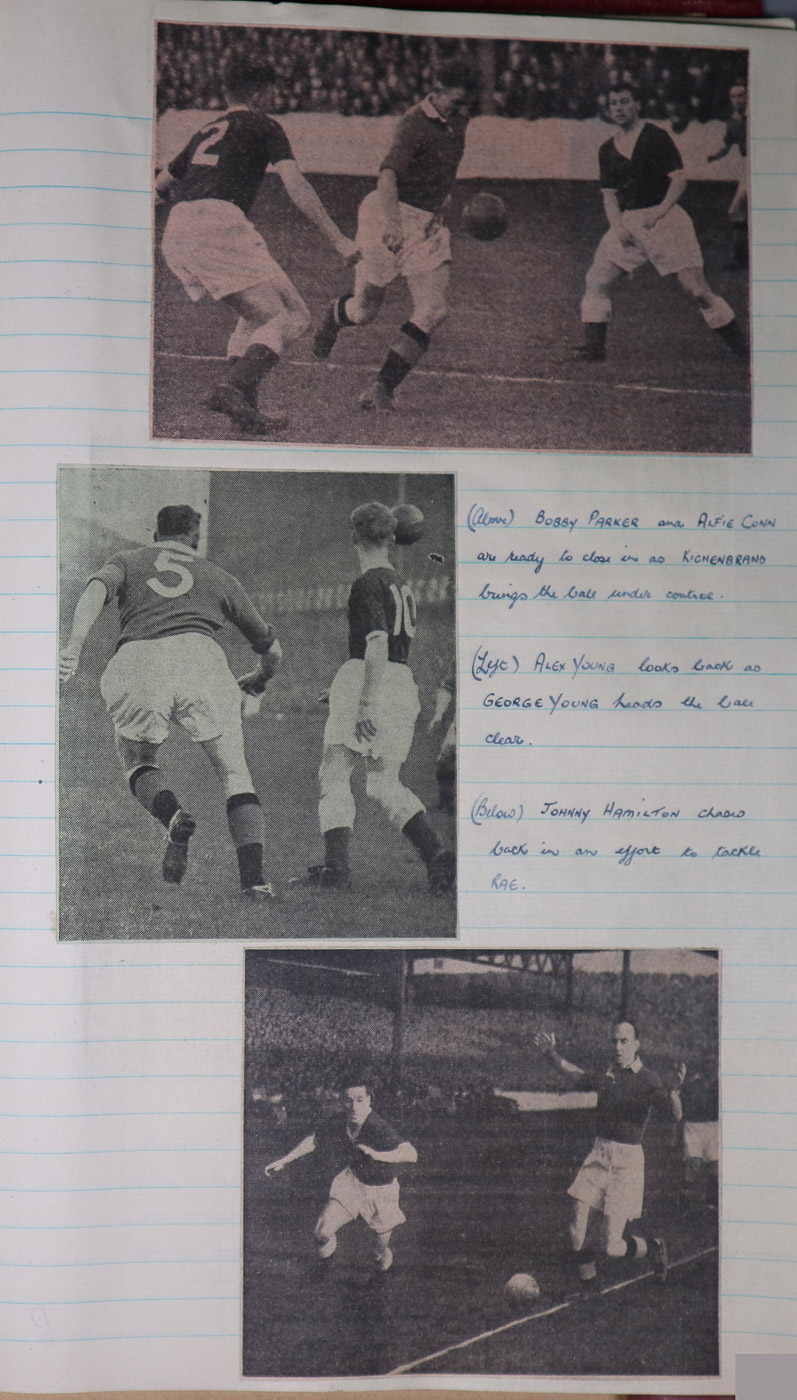 2
5
10
(Above) BOBBY PARKER and ALFIE CONN
are ready to close in as KICHENBRAND
brings the ball under control.
(Left) ALEX YOUNG looks back as
GEORGE YOUNG heads the ball
clear.
(Below) JOHNNY HAMILTON chases
back in an effort to tackle
RAE.